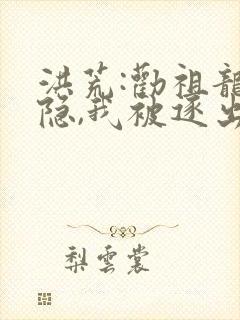 洪荒:勸祖龍
隐,我被逐出
梨雲裳